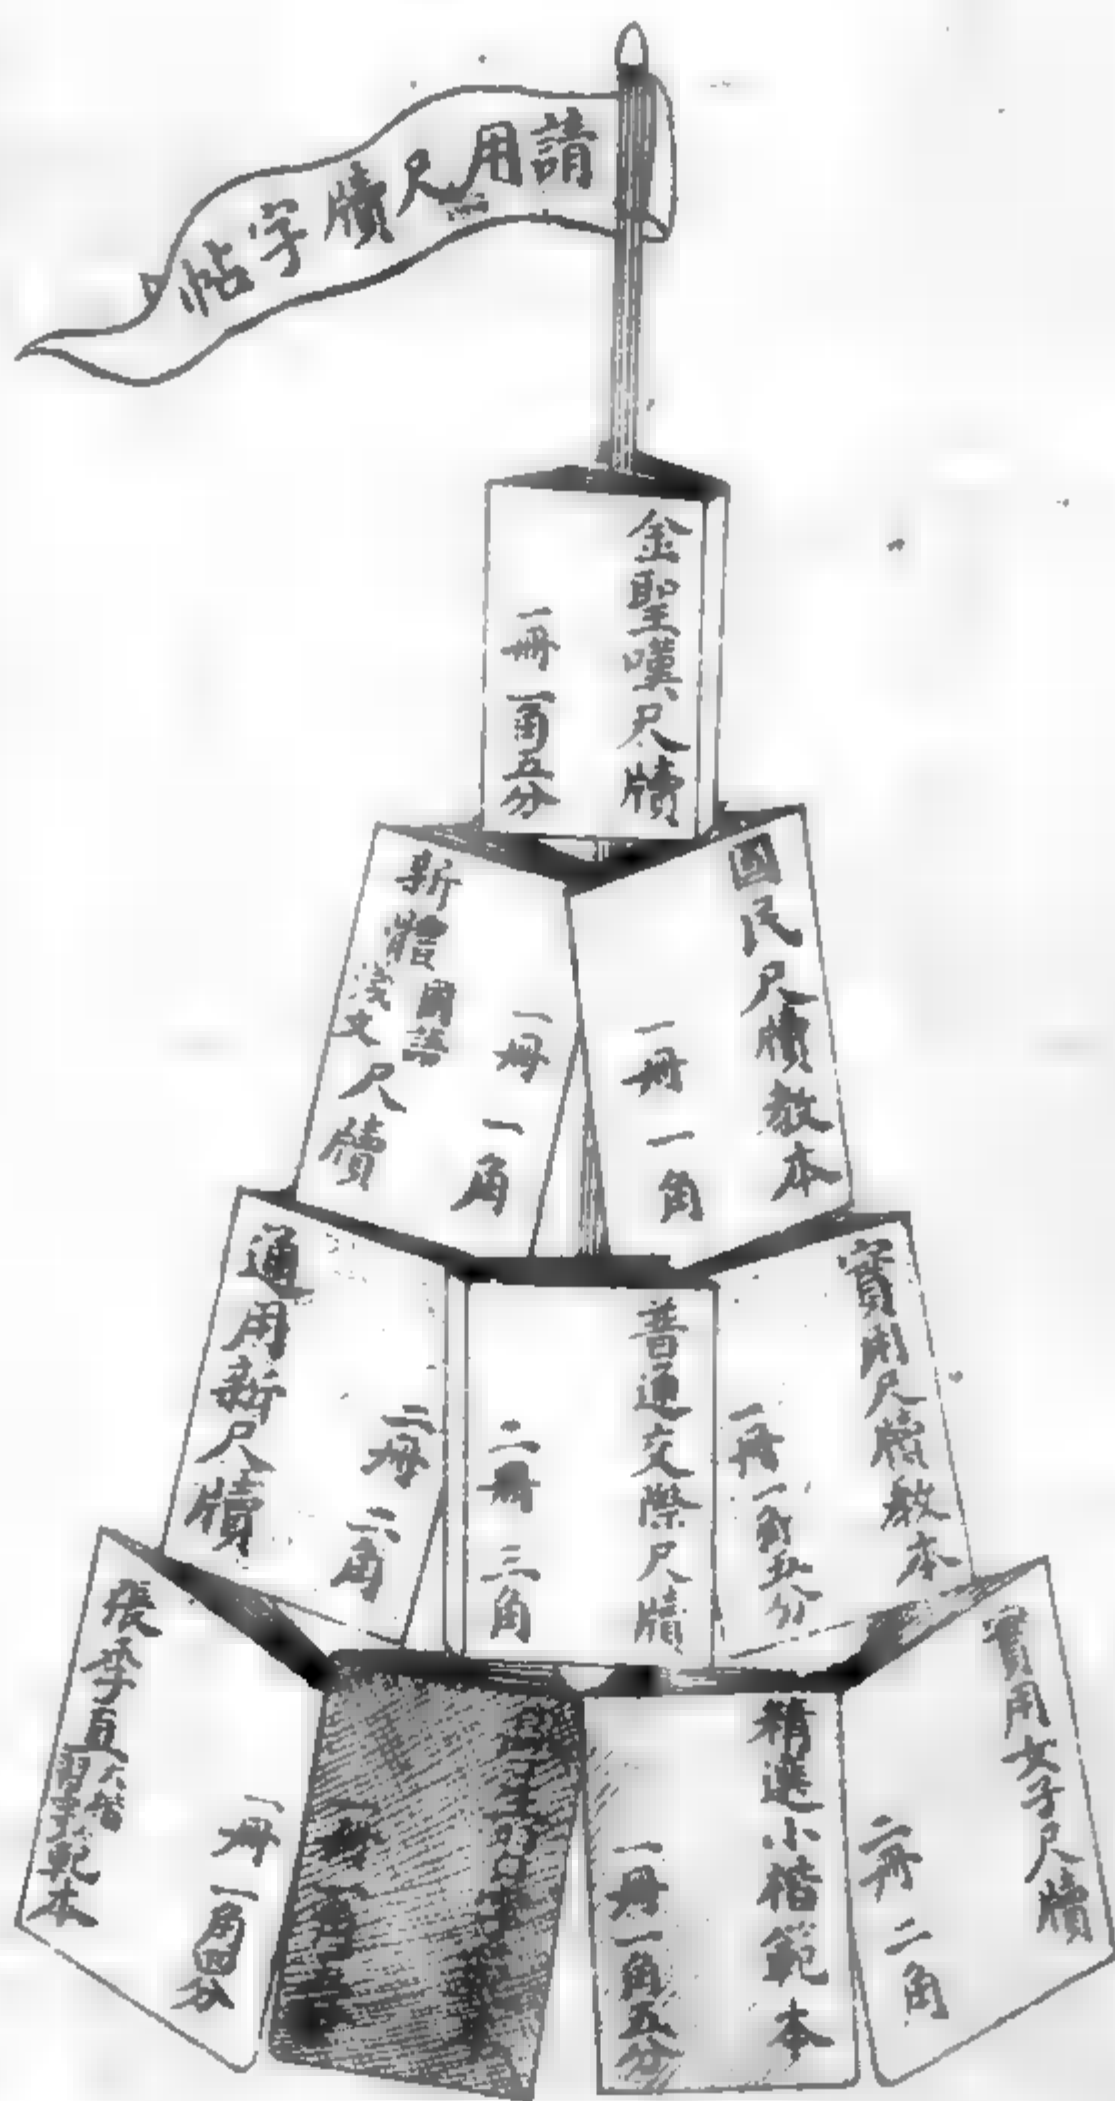 請用尺牘字帖
金聖嘆尺牘
一冊 一角五分
國民尺牘教本
一冊 一角
新體國語淺文尺牘
一冊 一角
實用尺牘教本
一冊 一角五分
普通交際尺牘
二冊 三角
通用新尺牘
二冊 二角
實用女子尺牘
二冊 二角
精選小楷範本
一冊 一角五分
一冊 一角
張季直
習字範本
一冊 一角四分